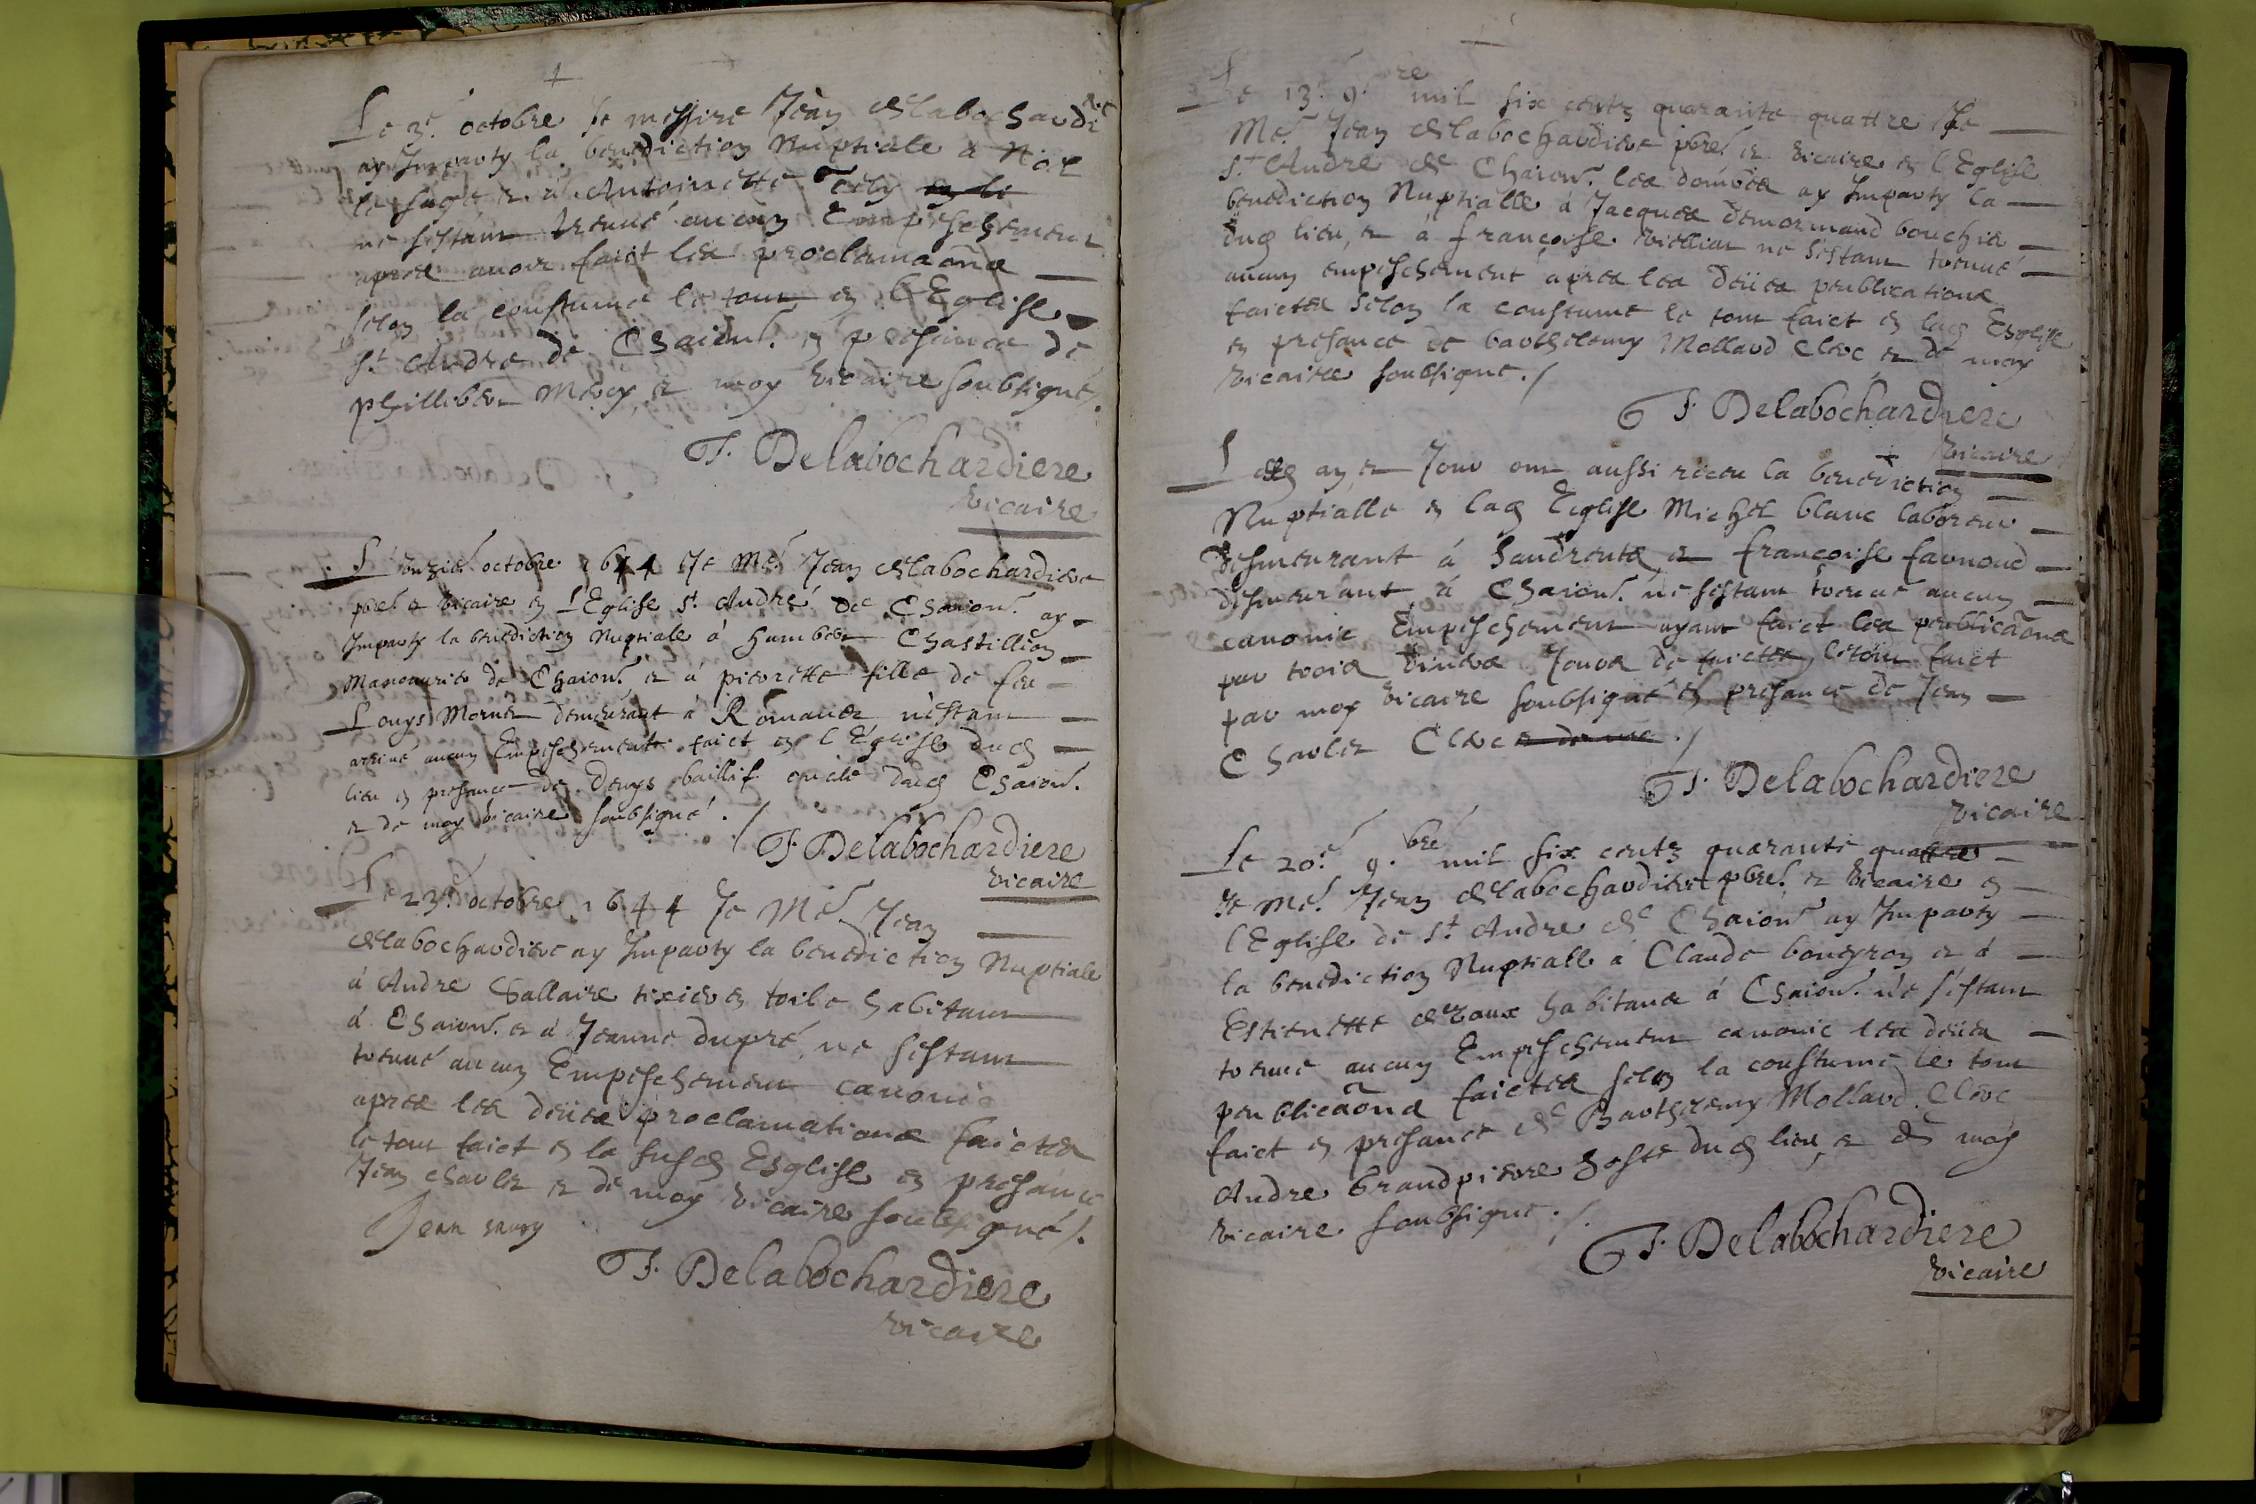 Le 3e. octobre Je messire Jean delabochardiere
ay Imparty la benediction Nuptiale a Noel
le sage et a Antoinette
ne sestant treuué aucun Empeschement
apres auoir faict les proclamaõns
selon la coustume le tout en l'Eglise
St Andre de Chaion. en presance de
phillibert Mercy et moy vicaire soubsigné.
J. Delabochardiere
vicaire
L'onzie. octobre 1644 Je Me. Jean delabochardiere
pbre. et vicaire en l'Eglise St. André de Chaion. ay
Imparty la benediction Nuptiale á humbert Chastillion
de Chaion. et á pierrette fille de feu
Louys Mornet demeurant á Romanes n'estant
arriué aucun Empeschement faict en l'Eglise dud
lieu en presance de Denys baillif dud Chaion.
et de moy vicaire soubsigné ./
J. Delabochardiere
vicaire
Le 23e. octobre 1644 Je Me. Jean
delabochardiere ay Imparty la benediction Nuptiale
á Andre Gallaire tixier en toile habitant
á Chaion. et á Jeanne dupré, ne sestant
treuué aucun Empeschement canonic
apres les deües proclamations faictes
le tout faict en la susd Esglise en presance
Jean charles et de moy vicaire soubsigné /.
Jean
J. Delabochardiere
vicaire
Le 13e. 9.re mil six centz quarante quattre Je
Me. Jean delabochardiere pbre. et vicaire en l'Eglise
St. Andre de Chaion. les ay Imparty la
benediction Nuptialle á Jacques demormand
dud lieu, et á françoise ne sestant treuué
aucun empeschement apres les deües peublications
faictes selon la coustume le tout faict en lad Esglise
en presance de barthelemy Mollard Clerc et de moy
vicaire soubsigné ./
J. Delabochardiere
vicaire
Lesd an et Jour ont aussi receu la benediction
Nuptialle en lad Eglise Michel blanc laboreur
desmeurant á Sandrents et françoise
desmeurant á Chaion. ne sestant treuué aucun
canonic Empeschement ayant faict les peublicaõns
par trois Jours de le tout faict
par moy vicaire soubsigné en presance de Jean
Charles Clerc ./
J. Delabochardiere
vicaire
Le 20e. 9.bre mil six centz quarante quattre
Je Me. Jean delabochardiere pbre. et vicaire en
l'Eglise de St. Andre de Chaion. ay Imparty
la benediction Nuptialle á Claude bouyron et á
Estienette habitans á Chaion. ne s'estant
treuué aucun Empeschement canonic les deües
peublicaõns faictes selon la coustume le tout
faict en presance de Barthelemy Mollard Clerc
Andre Grandpierre hoste dud lieu, et de moy
vicaire soubsigné ./.
J. Delabochardiere
vicaire